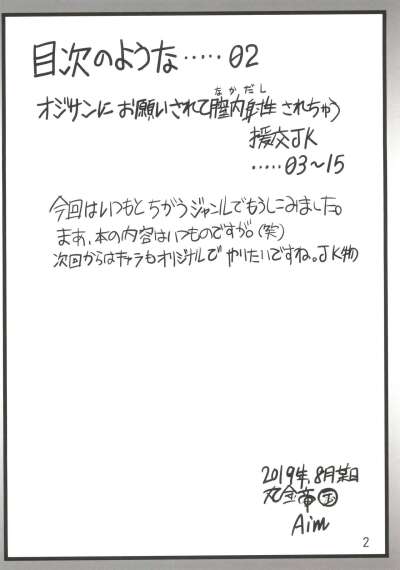 目次のような‥‥‥02
オジサンにお願いされて膣内射精されちゃう
なかだし
援交JK
‥‥‥03〜15
今回はいつもとちがうジャンルでもうしこみました。
まあ、本の内容はいつものですが。(笑)
次回からはキャラもオリジナルでやりたいですね。JK物
2019年.8月某日
Aim
2